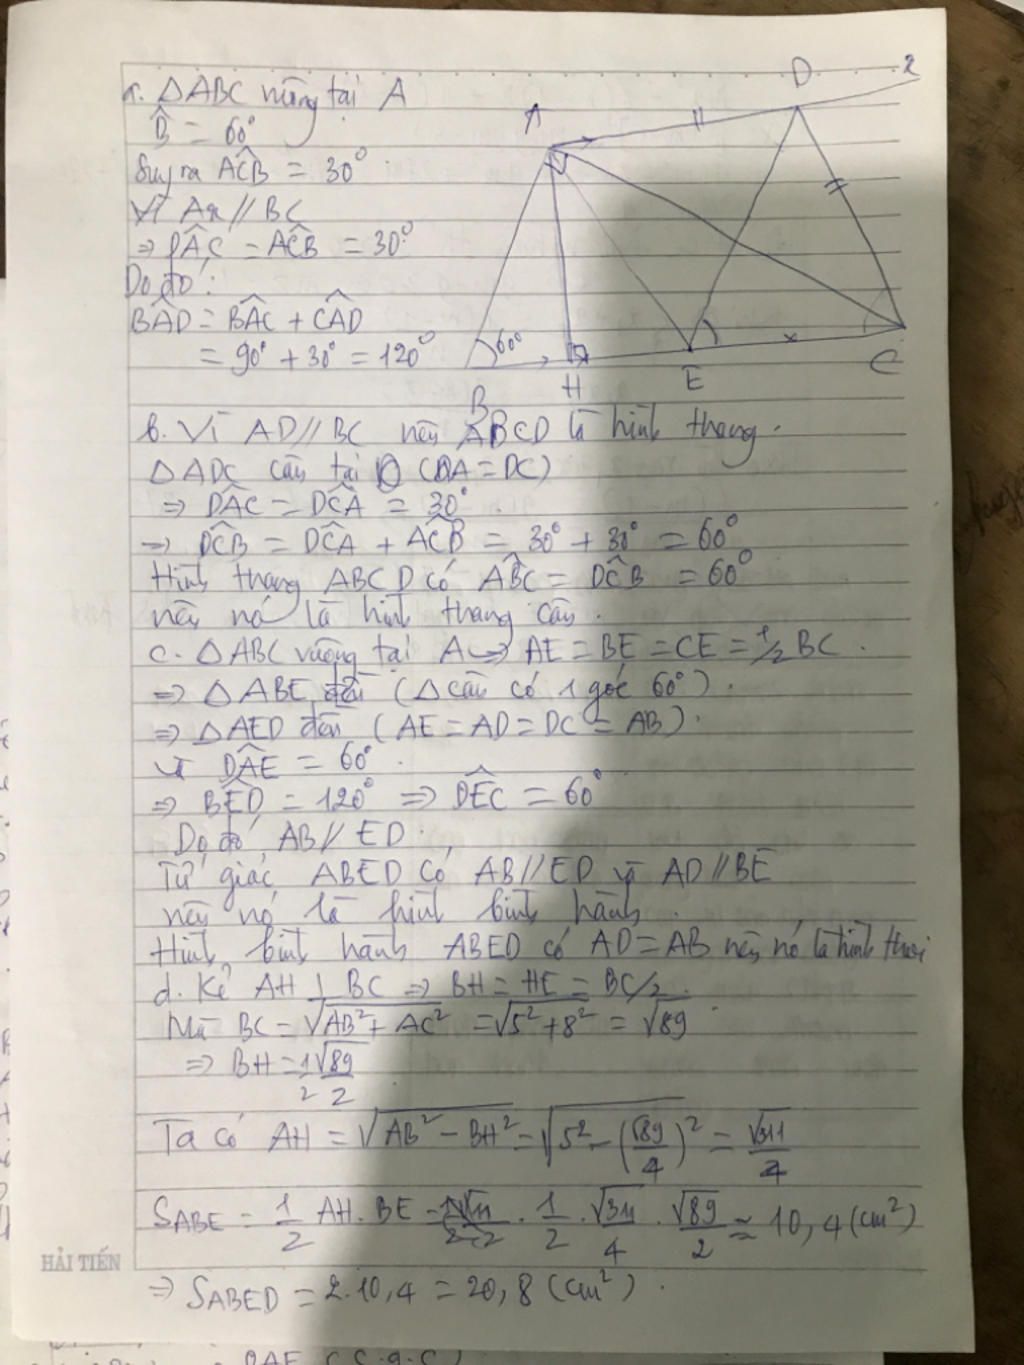 a. △ABC vuông tại A
B̂ = 60°
Suy ra AĈB = 30°.
Vì Ax // BC
⇒ DÂC = AĈB = 30°.
Do đó:
BÂD = BÂC + CÂD
= 90° + 30° = 120°
A
D
x
60°
B
H
E
C
b. Vì AD // BC nên ABCD là hình thang.
△ADC cân tại D (DA = DC)
⇒ DÂC = DĈA = 30°
⇒ DĈB = DĈA + AĈB = 30° + 30° = 60°
Hình thang ABCD có AB̂C = DĈB = 60°
nên nó là hình thang cân.
c. △ABC vuông tại A ⇒ AE = BE = CE = 1/2 BC.
⇒ △ABE đều (△ cân có 1 góc 60°).
⇒ △AED đều (AE = AD = DC = AB).
Vì DÂE = 60°.
⇒ BÊD = 120° ⇒ DÊC = 60°
Do đó AB // ED.
Tứ giác ABED có AB // ED và AD // BE
nên nó là hình bình hành.
Hình bình hành ABED có AD = AB nên nó là hình thoi
d. Kẻ AH ⊥ BC ⇒ BH = HE = BC/2.
Mà BC = √(AB² + AC²) = √(5² + 8²) = √89
⇒ BH = 1/2 √89/2
Ta có AH = √(AB² − BH²) = √(5² − (√89/4)²) = √311/4
S_ABE = 1/2 AH.BE = 1/2 . √311/4 . √89/2 ≈ 10,4 (cm²)
HẢI TIẾN
⇒ S_ABED = 2.10,4 = 20,8 (cm²).